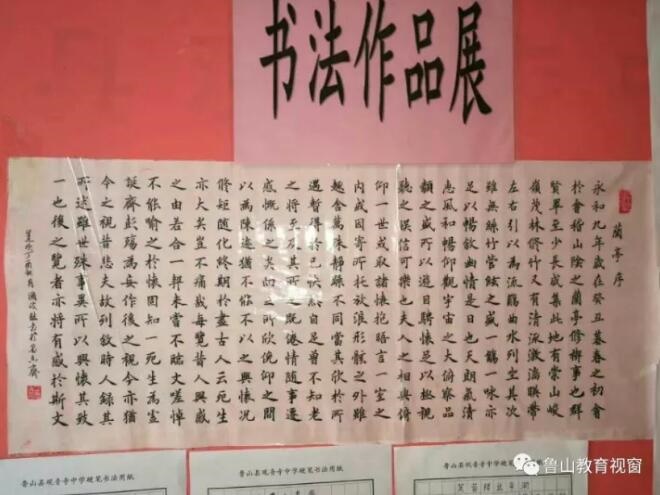 书法作品展
蘭亭序
永和九年歲在癸丑暮春之初會
於會稽山陰之蘭亭修禊事也群
賢畢至少長咸集此地有崇山峻
嶺茂林修竹又有清流激湍暎帶
左右引以為流觴曲水列坐其次
雖無絲竹管絃之盛一觴一詠亦
足以暢敘幽情是日也天朗氣清
惠風和暢仰觀宇宙之大俯察品
類之盛所以遊目騁懷足以極視
聽之娛信可樂也夫人之相與俯
仰一世或取諸懷抱晤言一室之
內或因寄所託放浪形骸之外雖
趣舍萬殊靜躁不同當其欣於所
遇暫得於己快然自足曾不知老
之將至及其所之既倦情隨事遷
感慨係之矣向之所欣俛仰之間
以為陳迹猶不能不以之興懷況
修短隨化終期於盡古人云死生
亦大矣豈不痛哉每覽昔人興感
之由若合一契未嘗不臨文嗟悼
不能喻之於懷固知一死生為虛
誕齊彭殤為妄作後之視今亦猶
今之視昔悲夫故列敘時人錄其
所述雖世殊事異所以興懷其致
一也後之覽者亦將有感於斯文
鲁山县观音寺中学硬笔书法用纸
鲁山县观音寺中学硬笔书法用纸
鲁山县观音寺中学硬笔书法用纸
鲁山教育视窗